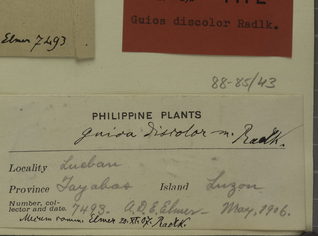 Elmer 7493
TYPE
Guioa discolor Radlk.
88-85/43
PHILIPPINE PLANTS
Guioa discolor m. Radlk.
Locality Lucban
Province Tayabas Island Luzon
Number, collector and date. 7493- A.D.E. Elmer- May, 1906.
Mecum comm. Elmer Radlk.